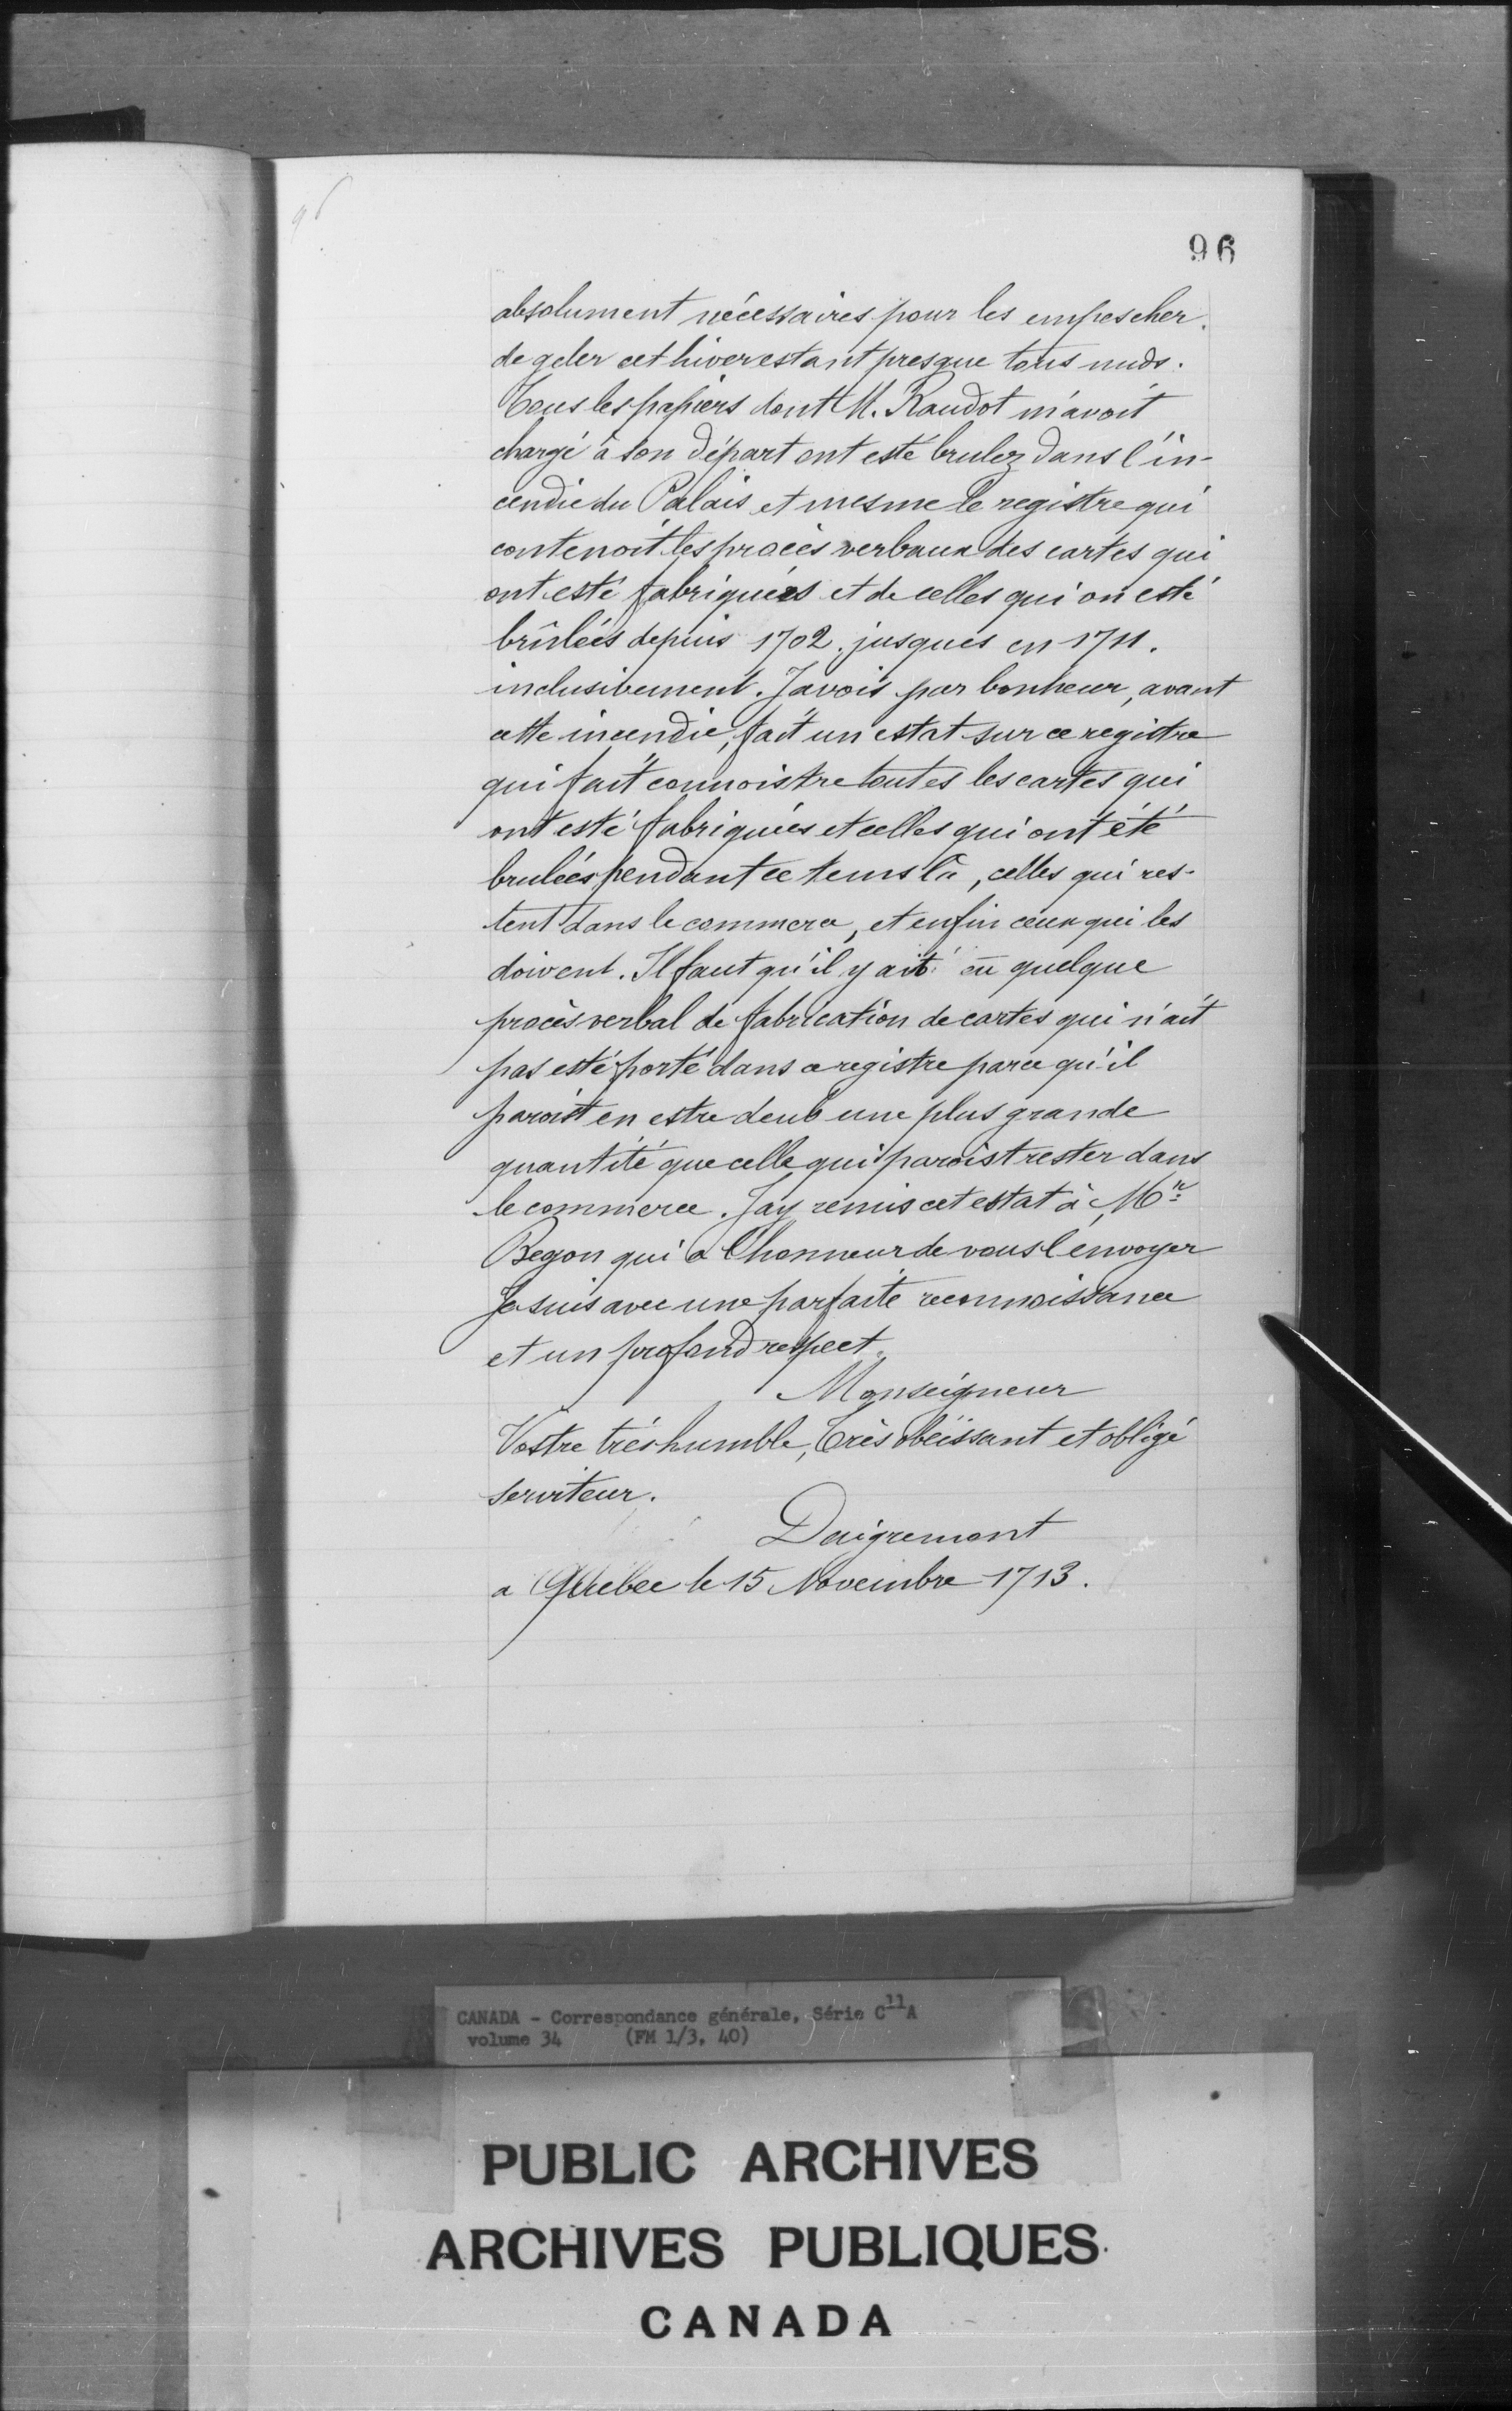 96
96
absolument nécessaires pour les empescher.
de geler cet hiver estant presque tous nuds.
Tous les papiers dont M. Raudot m'avoit
chargé à son départ ont esté brulez dans l'in-
cendie du Palais et mesme le registre qui
contenoit les procès verbaux des cartes qui
ont esté fabriquées et de celles qui on esté
brûlées depuis 1702. jusques en 1711.
inclusivement. J'avois par bonheur, avant
cette incendie, fait un estat sur ce registre
qui fait connoistre toutes les cartes qui
ont esté fabriquées et celles qui ont été
brulées pendant ce tems là, celles qui res-
tent dans le commerce, et enfin ceux qui les
doivent. Il faut qu'il y ait eû quelque
procès verbal de fabrication de cartes qui n'ait
pas esté porté dans ce registre parce qu'il
paroist en estre deub une plus grande
quantité que celle qui paroist rester dans
le commerce. Jay remis cet estat à Mr.
Begon qui a l'honneur de vous l'envoyer
Je suis avec une parfaite reconnoissance
et un profond respect.
Monseigneur
Vostre très humble, Très obéissant et obligé
serviteur.
Daigremont
a Québec le 15 Novembre 1713.
CANADA - Correspondance générale, Série C11A
volume 34 (FM 1/3, 40)
PUBLIC ARCHIVES
ARCHIVES PUBLIQUES
CANADA